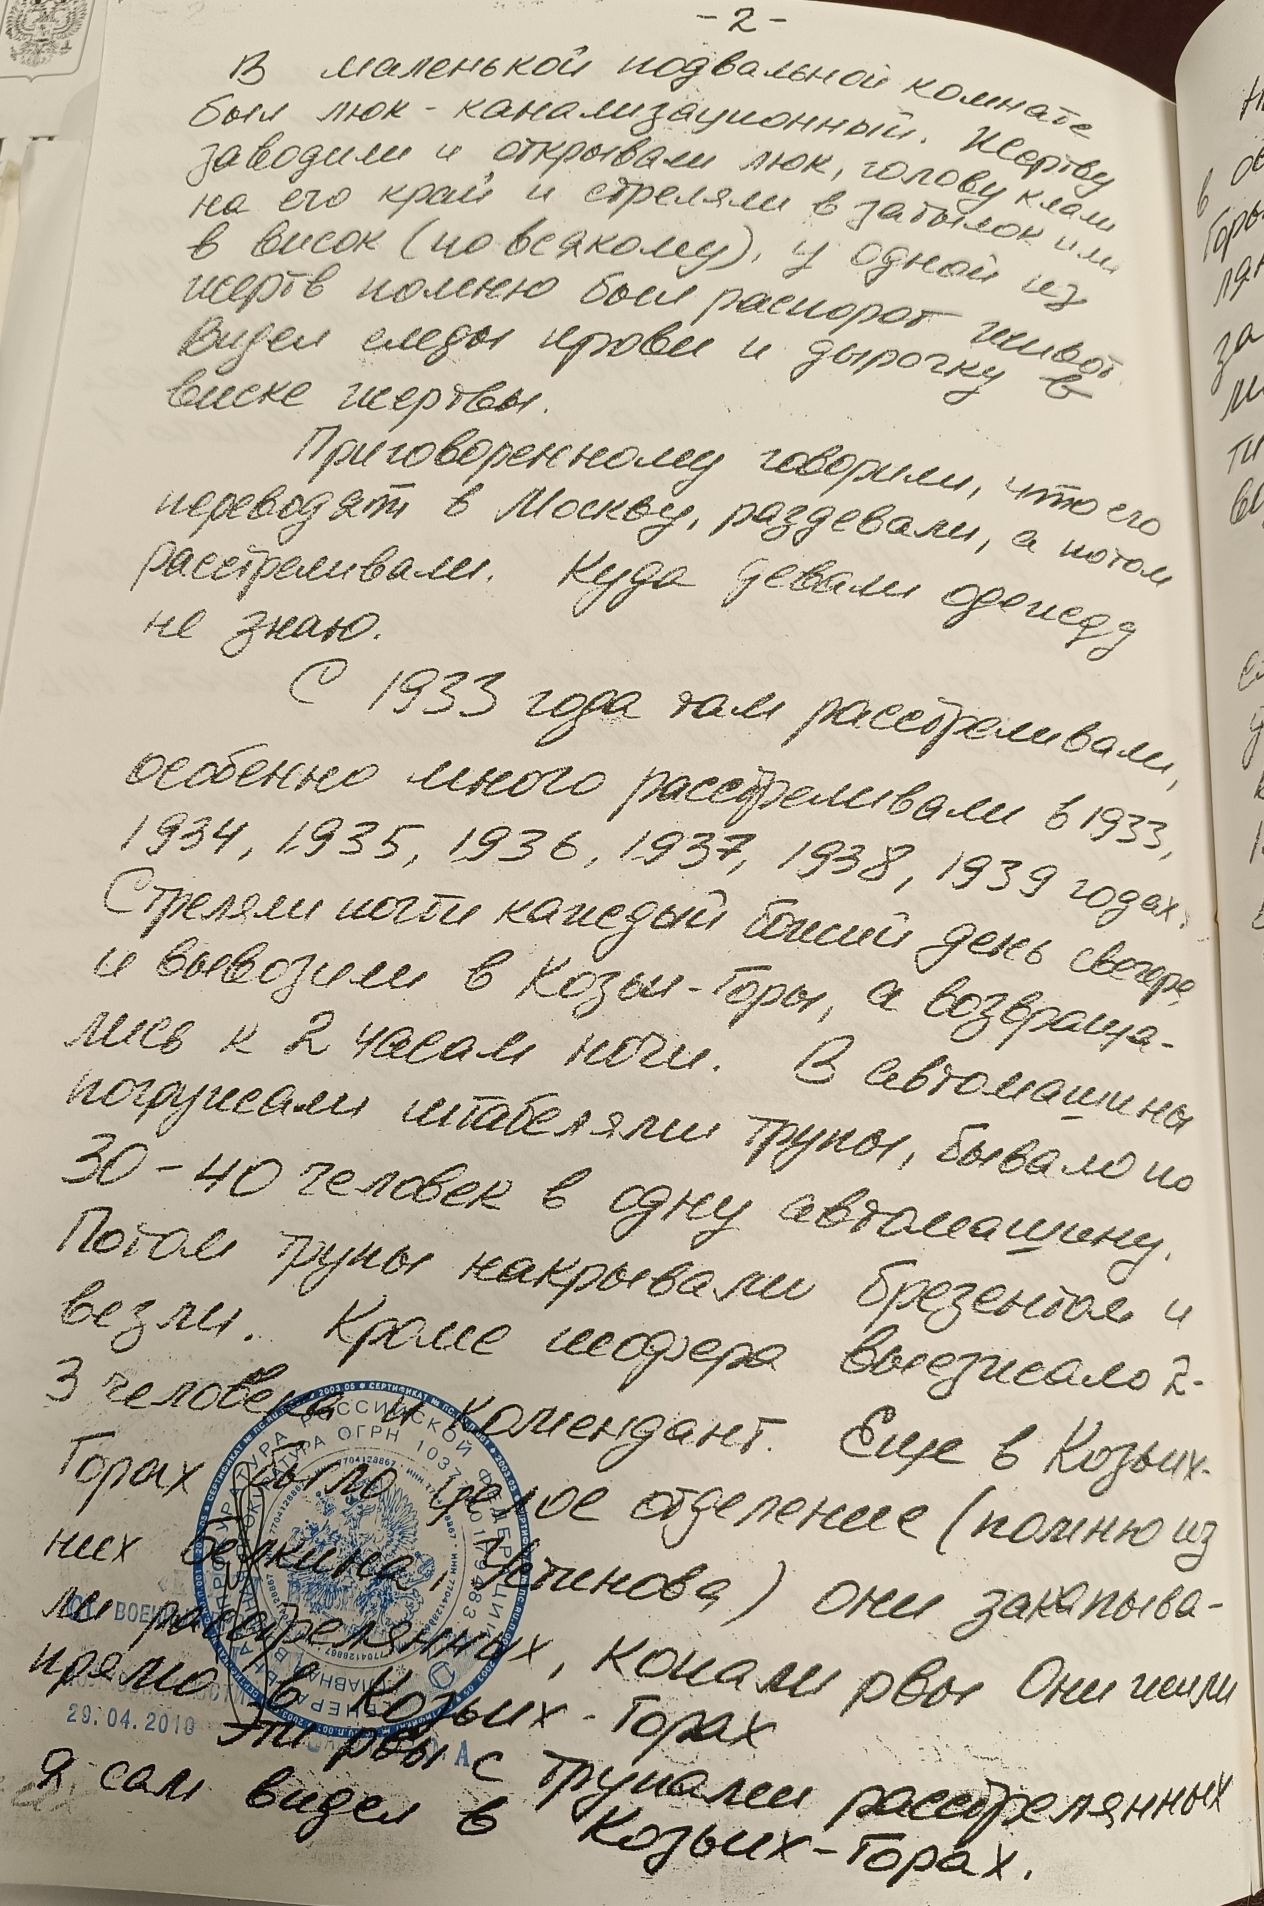 -2-
В маленькой подвальной комнате
был люк - канализационный. Жертву
заводили и открывали люк, голову клали
на его край и стреляли в затылок или
в висок (по всякому), у одной из
жертв помню был распорот живот.
Видел следы крови и дырочку в
виске жертвы.
Приговоренному говорили, что его
переводят в Москву, раздевали, а потом
расстреливали. Куда девали одежду
не знаю.
С 1933 года там расстреливали,
особенно много расстреливали в 1933,
1934, 1935, 1936, 1937, 1938, 1939 годах.
Стреляли почти каждый божий день свечера,
и вывозили в Козьи-Горы, а возвраща-
лись к 2 часам ночи. В автомашины
погружали штабелями трупы, бывало по
30-40 человек в одну автомашину.
Потом трупы накрывали брезентом и
везли. Кроме шофера выезжало 2-
3 человека и комендант. Еще в Козьих-
Горах было целое отделение (помню из
них Белкина, Устинова) они закапыва-
ли расстрелянных, копали рвы Они жили
прямо в Козьих-Горах
Эти рвы с трупами расстрелянных
я сам видел в Козьих-Горах.
29.04.2010